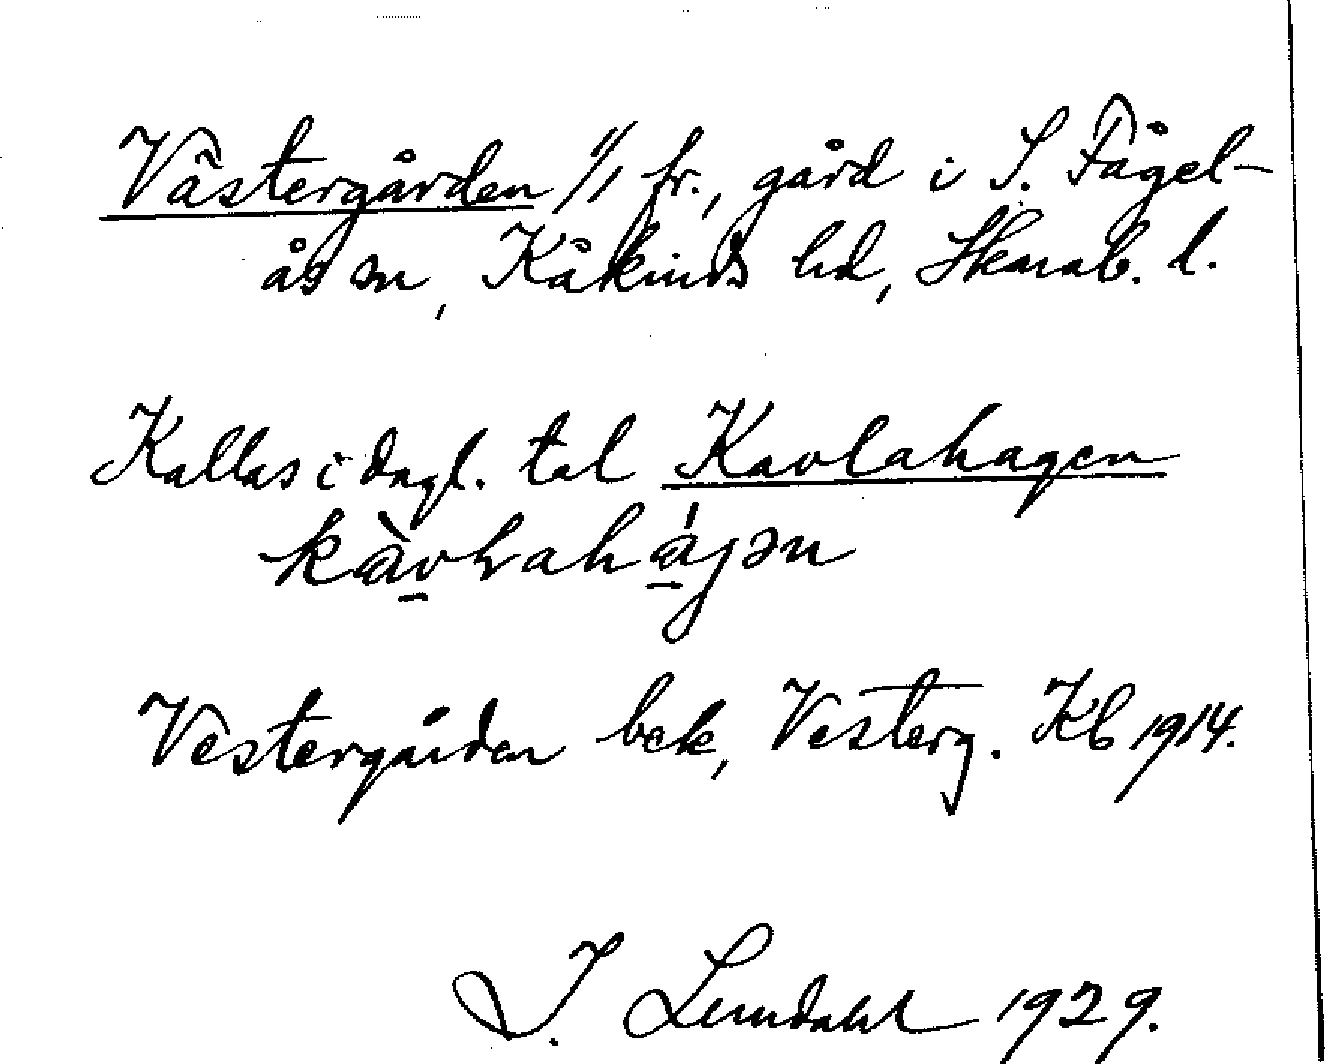 Västergården 1/1 fr., gård i S. Fågel-
ås sn, Kåkinds hd, Skarab. l.
Kallas i dagl. tal Kavlahagen
kàvlahágən
Vestergården bek, Vesterg. Kb 1914.
J. Lundahl 1929.